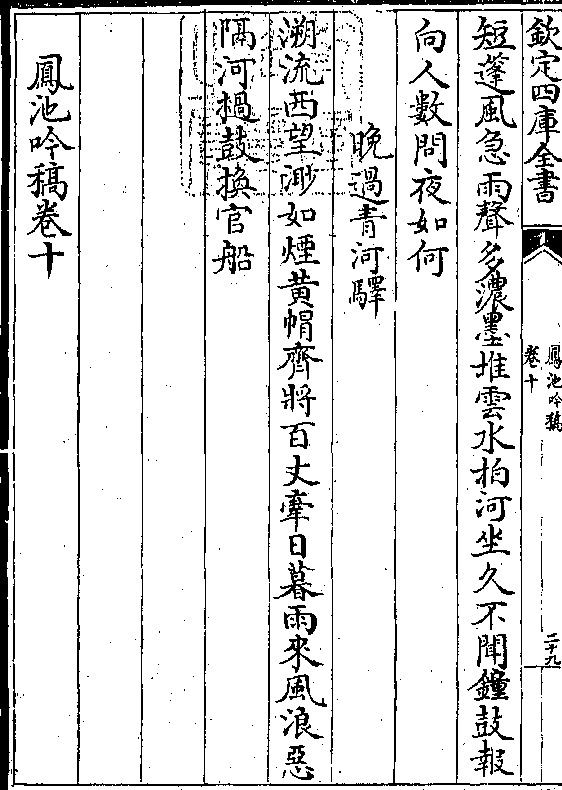 欽定四庫全書
鳳池吟稿
卷十
二十九
短篷風急雨聲多濃墨堆雲水拍河坐久不聞鐘鼓報
向人數問夜如何
晚過青河驛
溯流西望渺如煙黃帽齊將百丈牽日暮雨來風浪惡
隔河撾鼓換官船
鳳池吟稿卷十